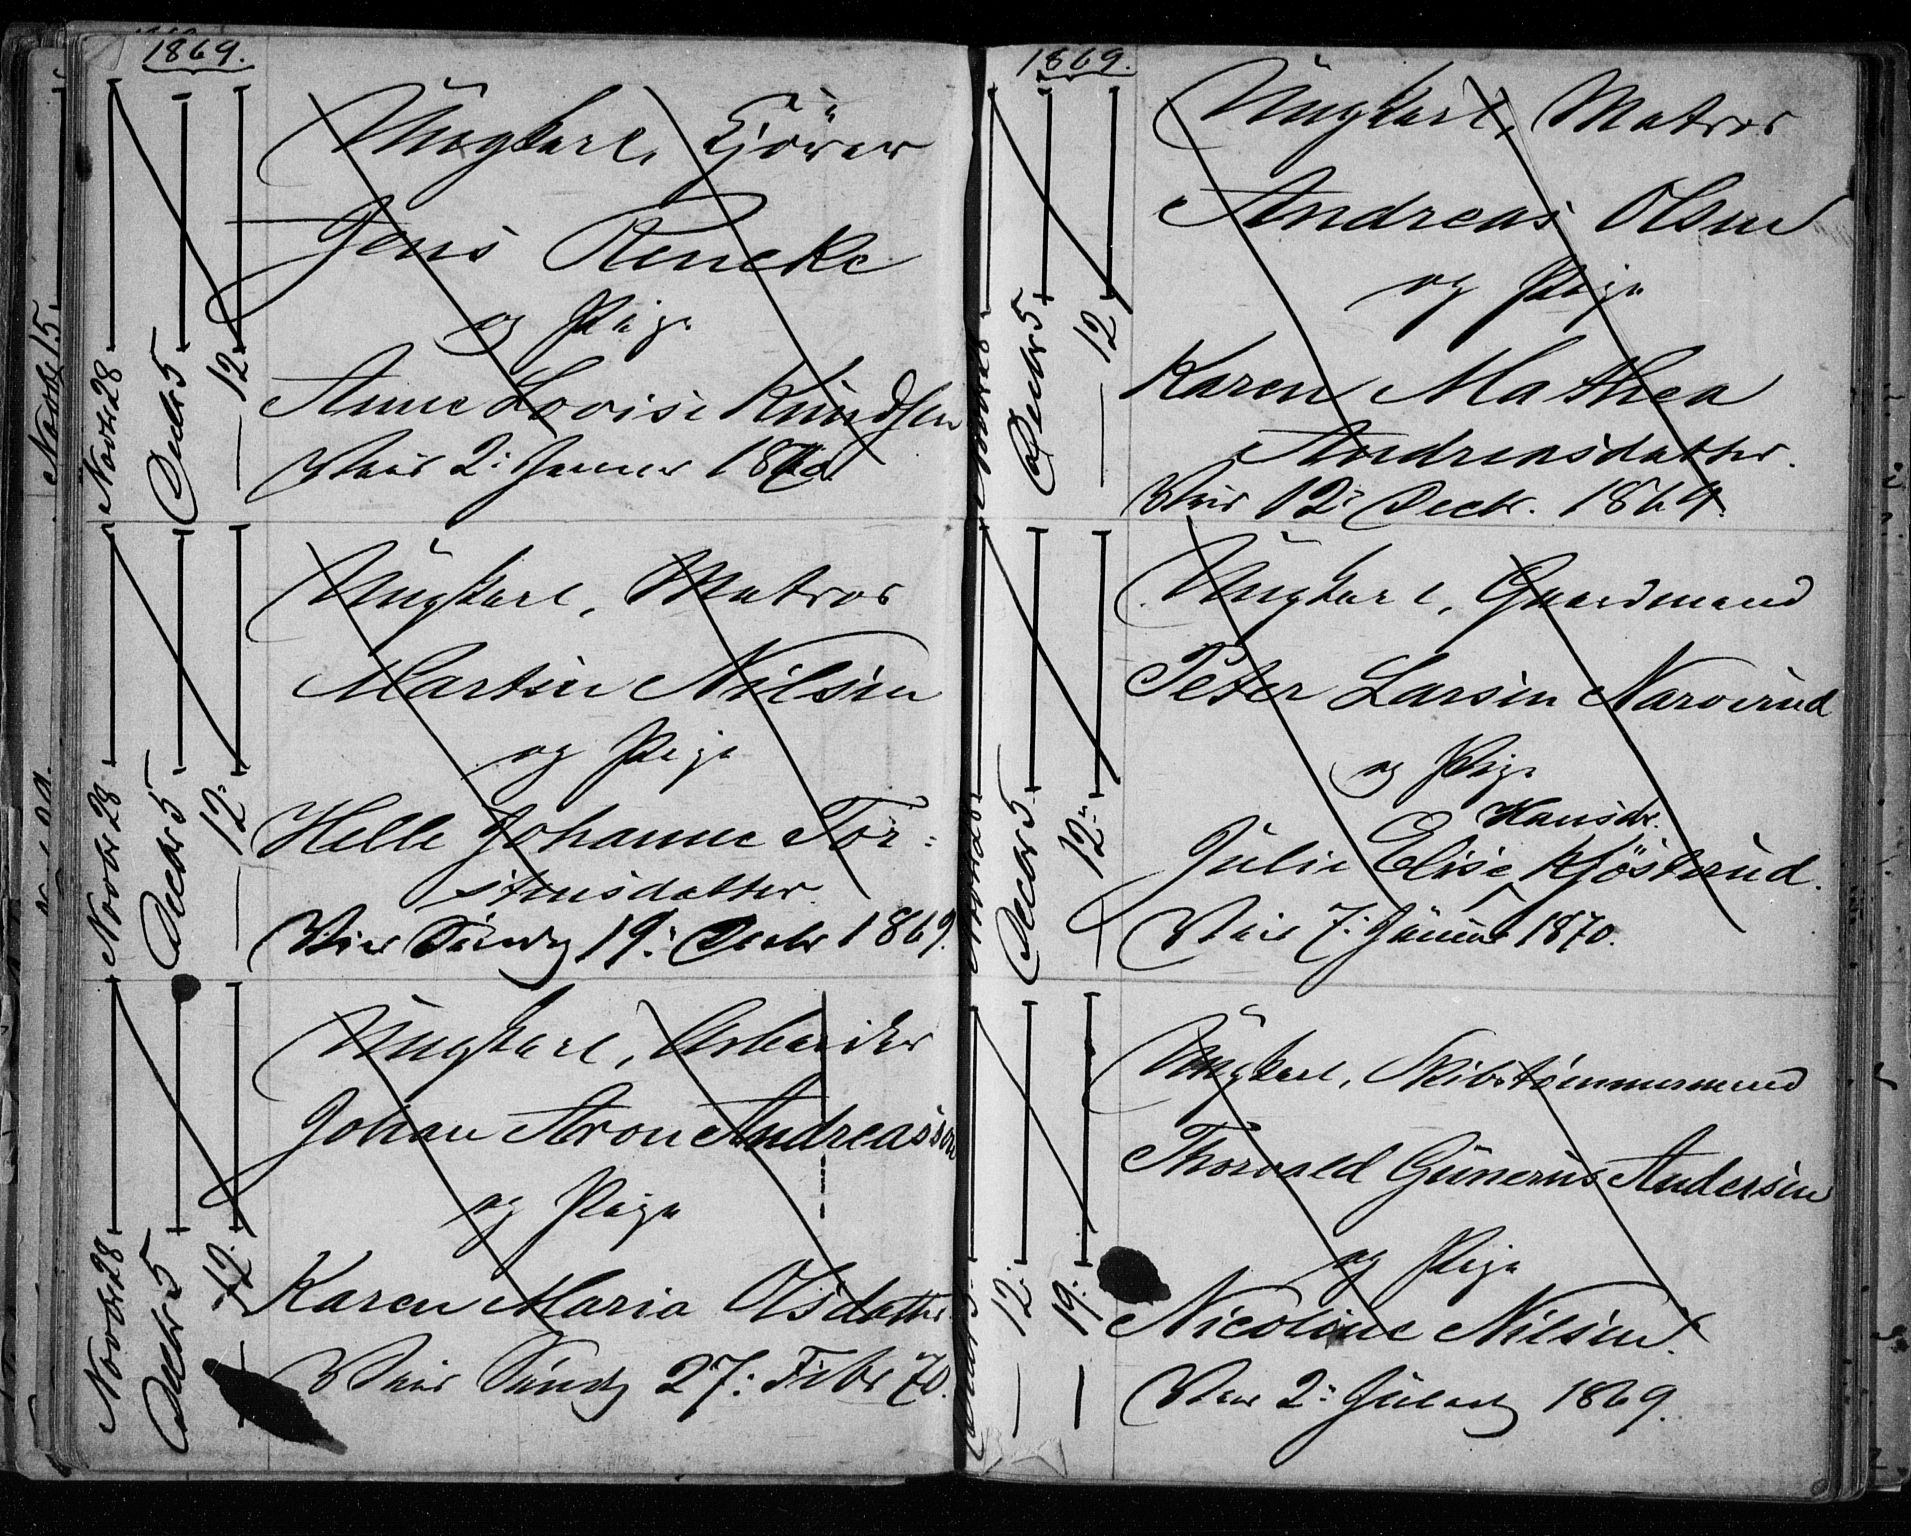 1869.
Novbr 28
Decbr 5
— 12.
Ungkarl, Kjörer
Jens Reneke
og Pige
Anne Lovise Knudsen
Viet 2: Januar 1870.
Novbr 28
Decbr 5
— 12.
Ungkarl, Matros
Martin Nilsen
og Pige
Helle Johanne Tor=
stensdatter.
Viet Søndg 19: Decbr 1869.
Novbr 28
Decbr 5
— 12.
Ungkarl, Arbeider
Johan Aron Andreassen
og Pige
Karen Maria Olsdatter
Viet Søndg 27: Febr 70.
Novbr 15
1869.
Novbr 28
Decbr 5
— 12
Ungkarl, Matros
Andreas Olsen
og Pige
Karen Mathea
Andreasdatter.
Viet 12: Decbr. 1869.
Novbr 28
Decbr 5
— 12:
Ungkarl, Gaardmand
Peter Larsen Narverud
og Pige
Hansdr.
Julie Elise Kjöstarud.
Viet 7: Januar 1870.
Decbr 5
— 12:
— 19:
Ungkarl, Skibstømmermand
Thorvald Gunerius Andersen
og Pige
Nicoline Nilsen.
Viet 2: Juledg 1869.